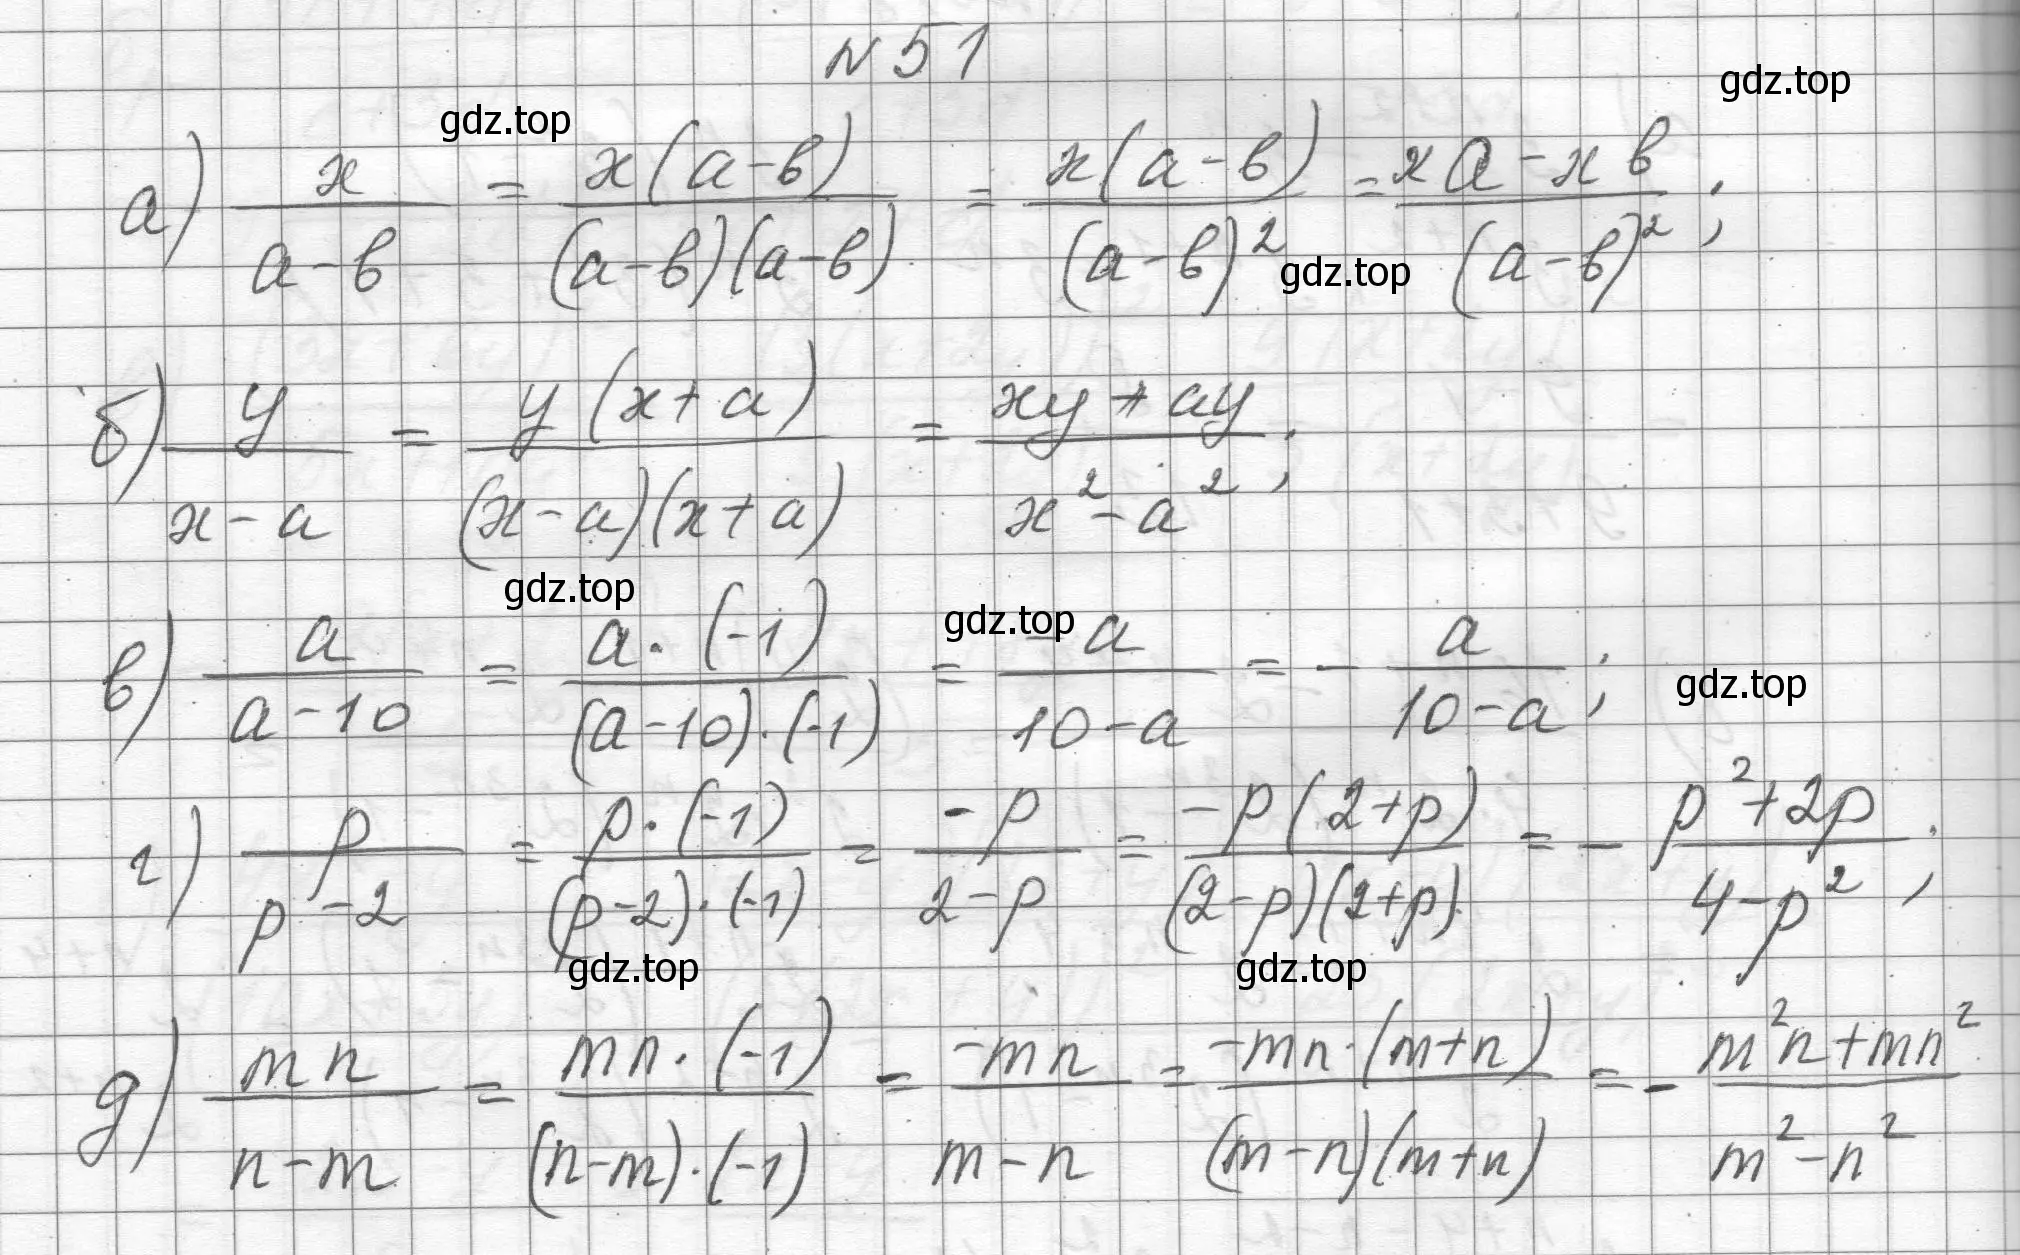 №51
gdz.top
gdz.top
а) x/(a-b) = x(a-b)/((a-b)(a-b)) = x(a-b)/(a-b)² = (xa-xb)/(a-b)²;
gdz.top
б) y/(x-a) = y(x+a)/((x-a)(x+a)) = (xy+ay)/(x²-a²);
gdz.top
gdz.top
в) a/(a-10) = a·(-1)/((a-10)·(-1)) = -a/(10-a) = -a/(10-a);
gdz.top
г) p/(p-2) = p·(-1)/((p-2)·(-1)) = -p/(2-p) = -p(2+p)/((2-p)(2+p)) = -(p²+2p)/(4-p²);
gdz.top
gdz.top
д) mn/(n-m) = mn·(-1)/((n-m)·(-1)) = -mn/(m-n) = -mn·(m+n)/((m-n)(m+n)) = -(m²n+mn²)/(m²-n²)